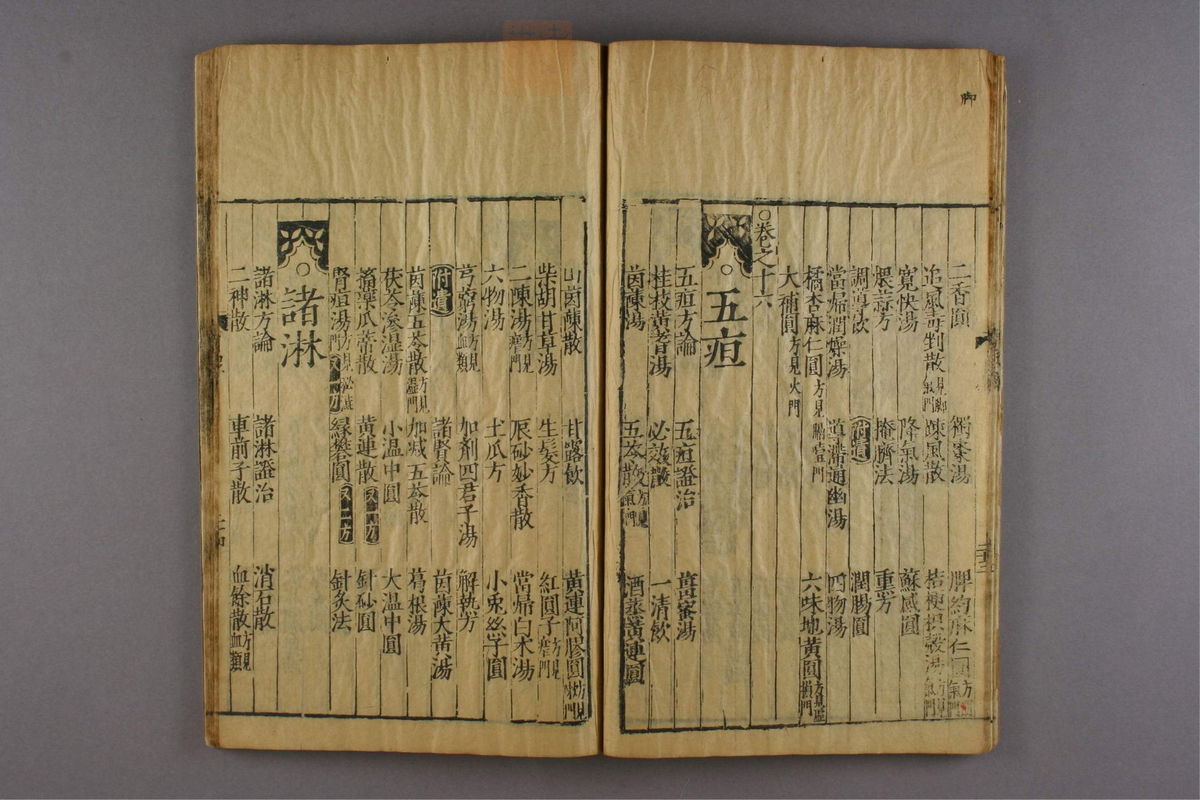 脚
二香圓 衝氣湯 脾約麻仁圓
追風毒剉散 疎風散 桔梗枳殼湯
寛快湯 降氣湯 蘇感圓
煨蒜方 掩臍法 重方
調導飲 附遺 潤腸圓
當歸潤燥湯 導滯通幽湯 四物湯
橘杏麻仁圓方見脚氣門 六味地黄圓方見虛損門
大補圓方見火門
○卷之十六
○五疸
五疸方論 五疸證治 薑蜜湯
桂枝黄耆湯 必效散 一清飲
茵蔯湯 五苓散 酒蒸黄連圓
山茵蔯散 甘露飲 黄連阿膠圓
柴胡甘草湯 生髮方 紅圓子方見瘧門
二陳湯方見瘧門 辰砂妙香散 當歸白朮湯
六物湯 土瓜方 小兎絲子圓
芎藭湯方見血類 加劑四君子湯 解熱方
附遺 諸賢論 茵蔯大黄湯
茵蔯五苓散方見濕門 加减五苓散 葛根湯
茯苓滲濕湯 小温中圓 大温中圓
搐藥瓜蒂散 黄連散又一方 針砂圓
腎疸湯 緑礬圓又二方 針灸法
○諸淋
諸淋方論 諸淋證治 消石散
二神散 車前子散 血餘散方見血類